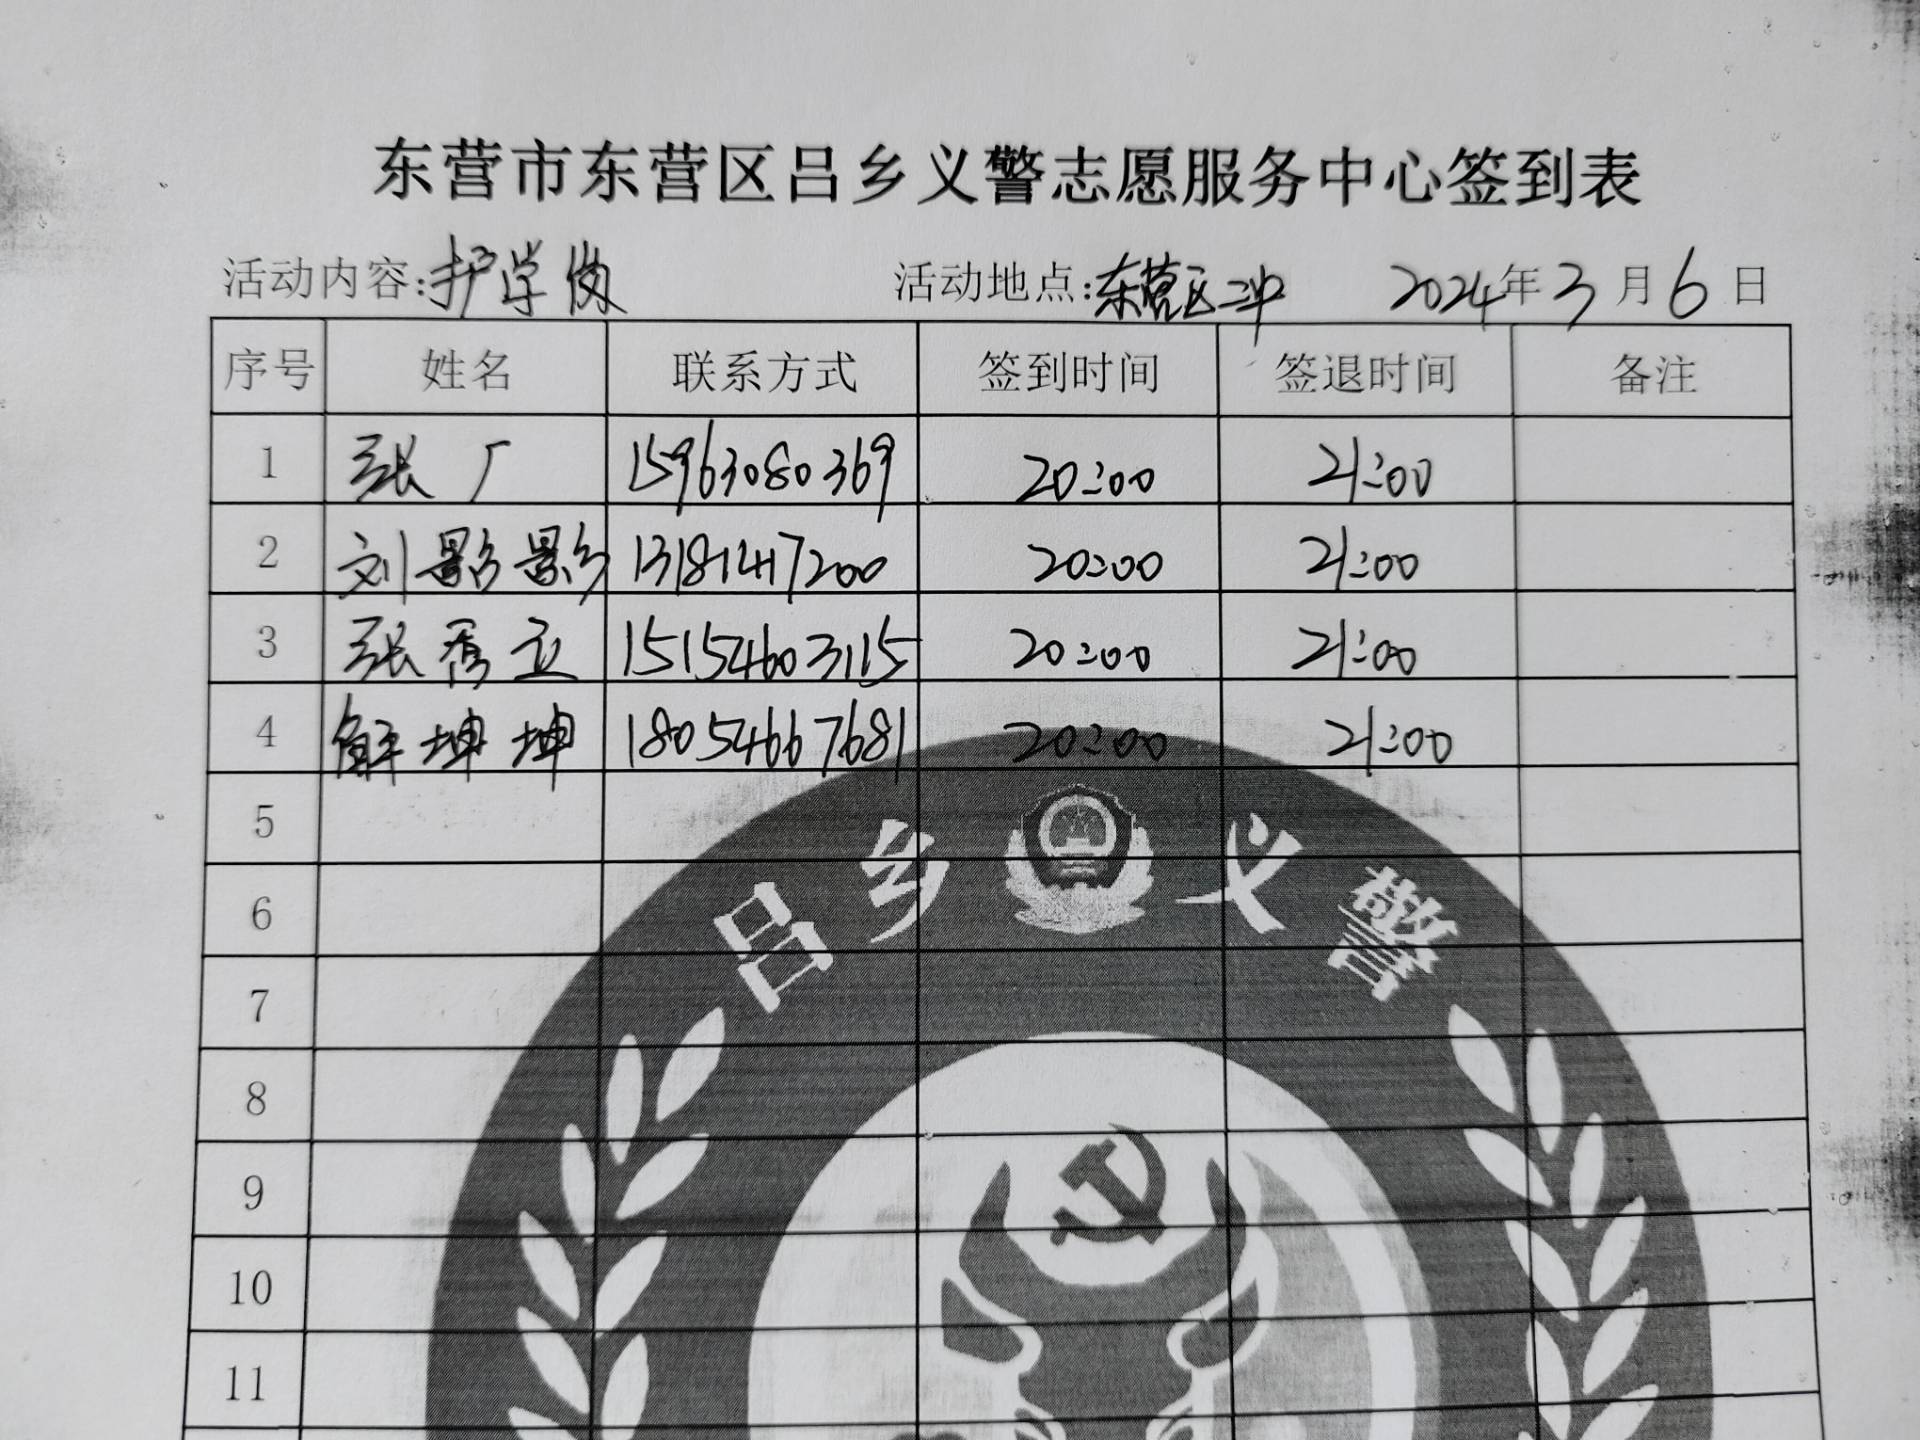 东营市东营区吕乡义警志愿服务中心签到表
活动内容:护学岗 活动地点:东营区二中 2024年3月6日
序号 姓名 联系方式 签到时间 签退时间 备注
1 张广 15963080369 20:00 21:00
2 刘影影 13181417200 20:00 21:00
3 张秀立 15154603115 20:00 21:00
4 解坤坤 18054667681 20:00 21:00
5
吕乡义警
6
7
8
9
10
11